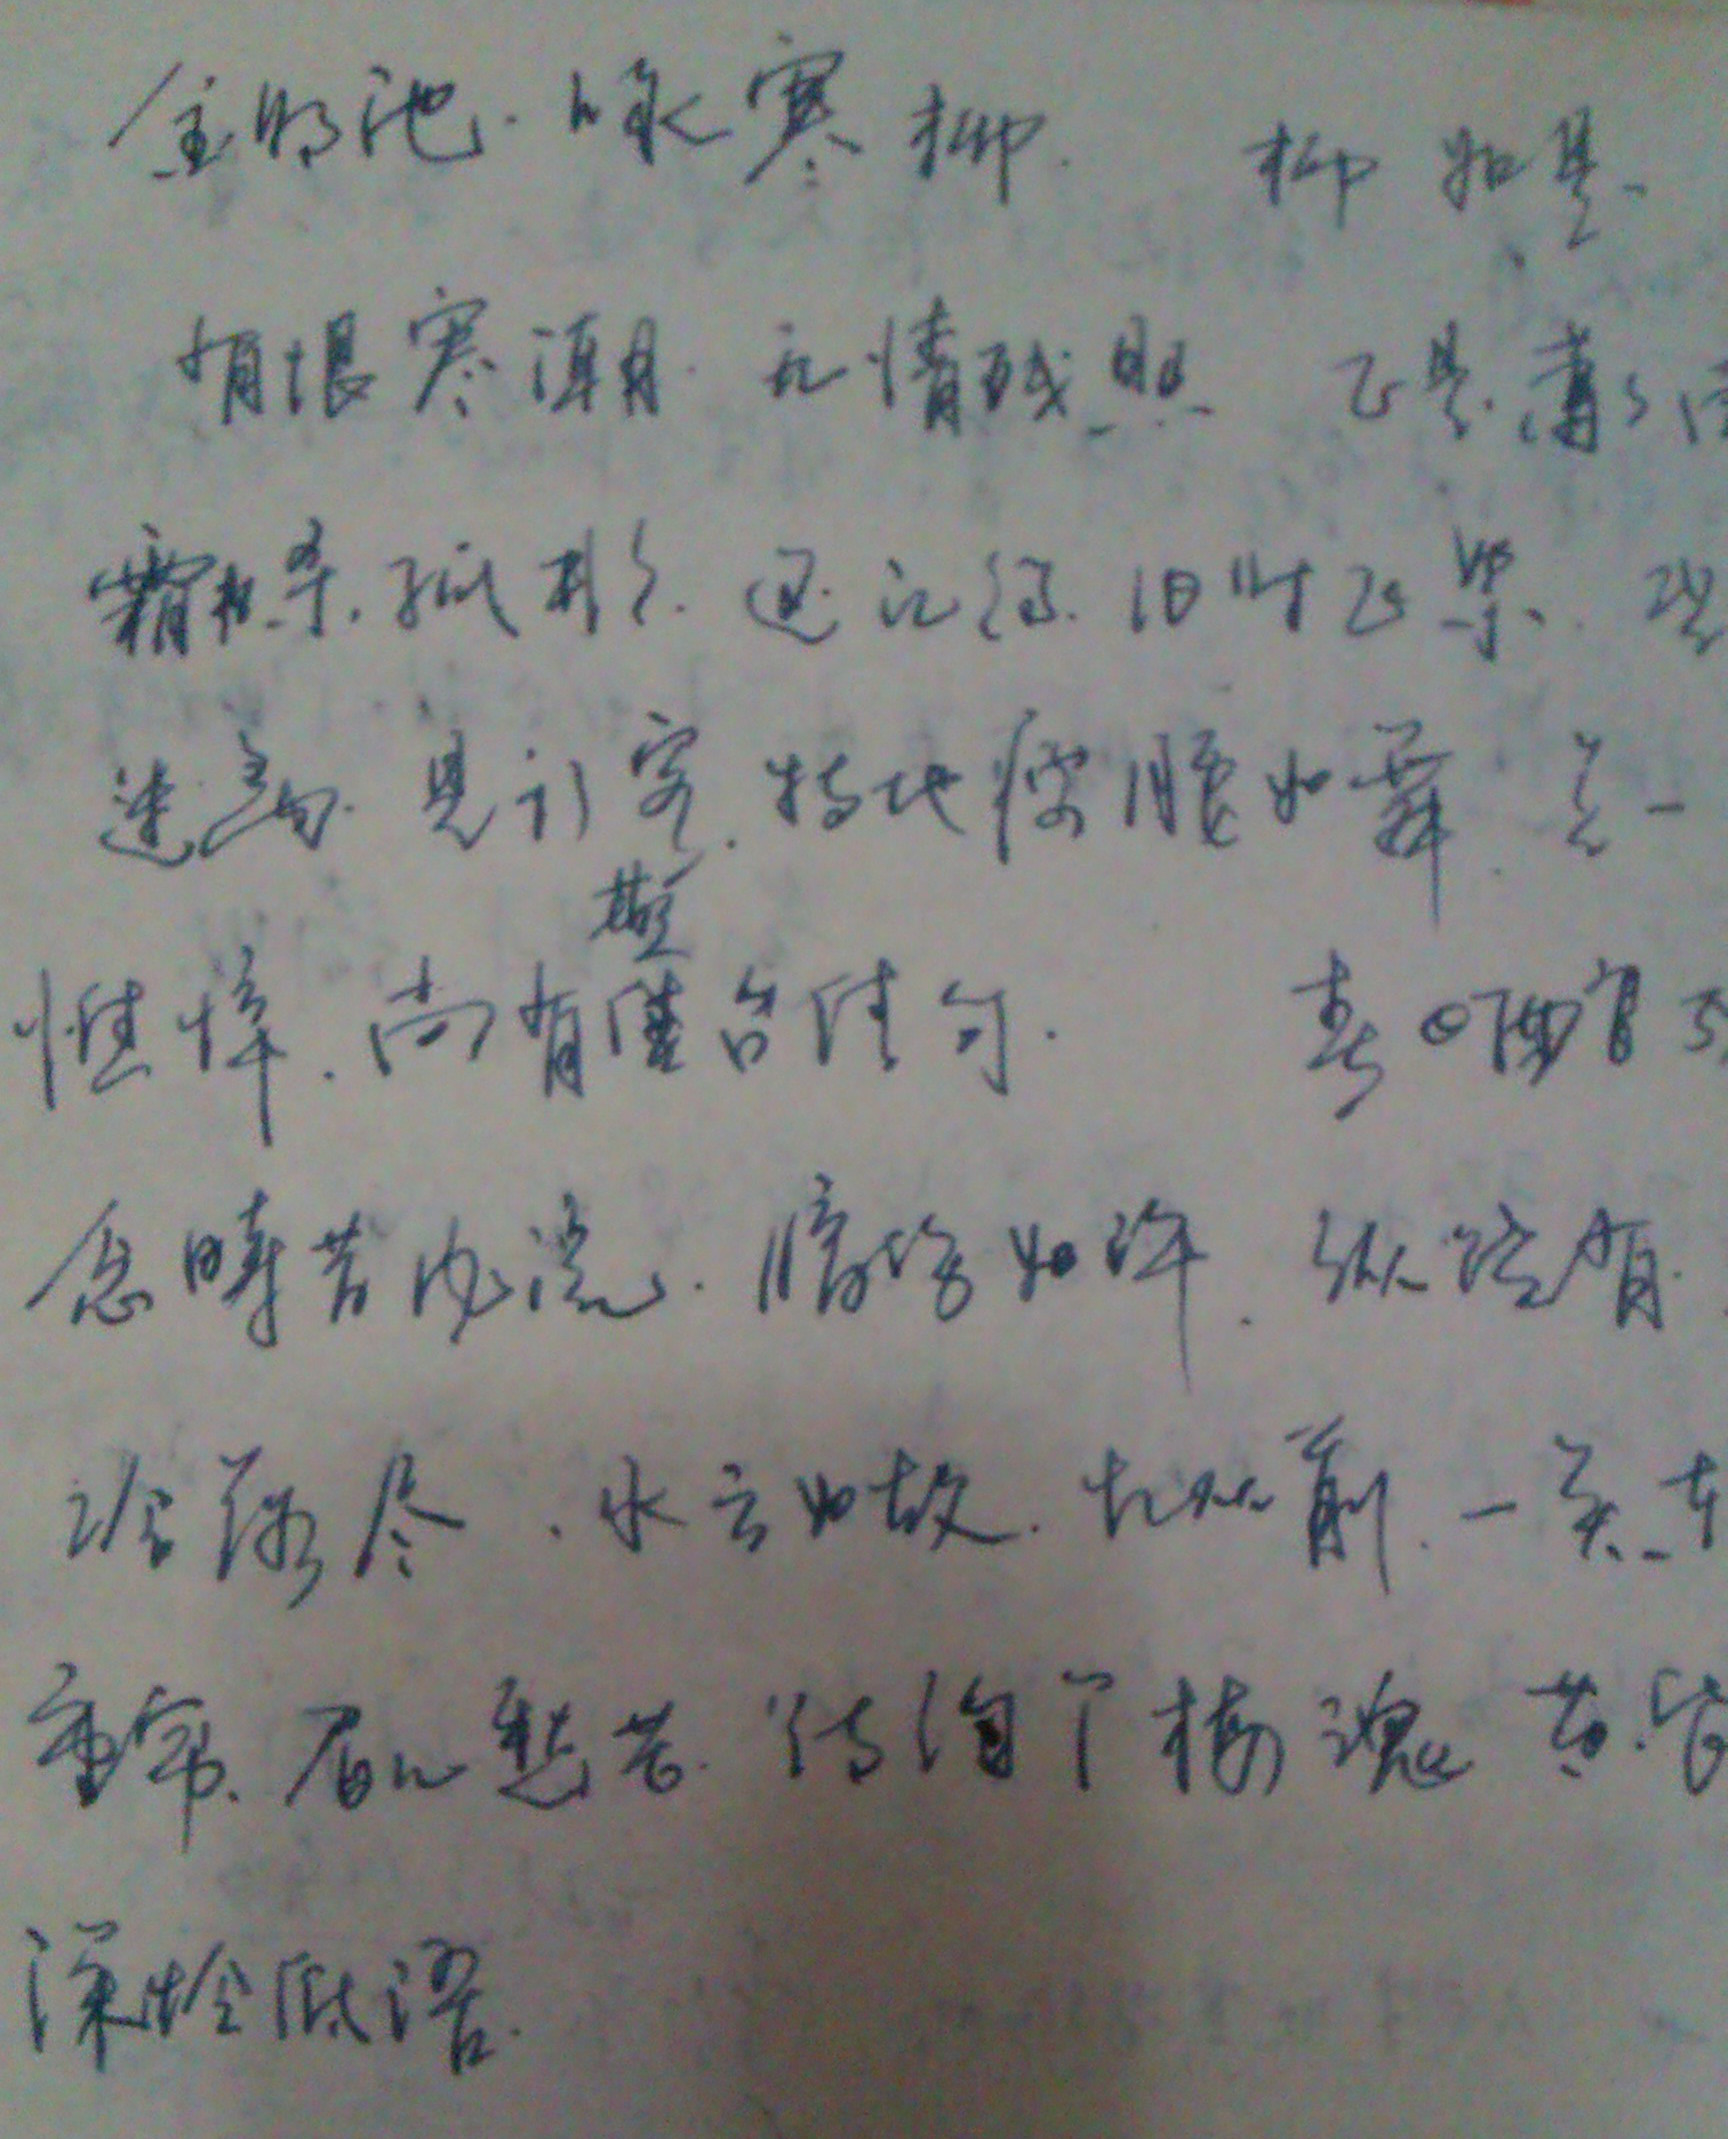 金明池·咏寒柳. 柳如是
有恨寒潮. 无情残照 正是萧萧
霜条孤影. 还记得. 旧时飞絮.
迷离 见行客. 特地瘦腰如舞. 总一
燕
憔悴. 尚有台佳句. 春日酿
念畴昔风流. 暗伤如许. 纵饶有
冷落尽. 水云如故. 忆从前. 一点东
重帘. 眉儿愁苦. 待约个梅魂 黄昏
深怜低语.